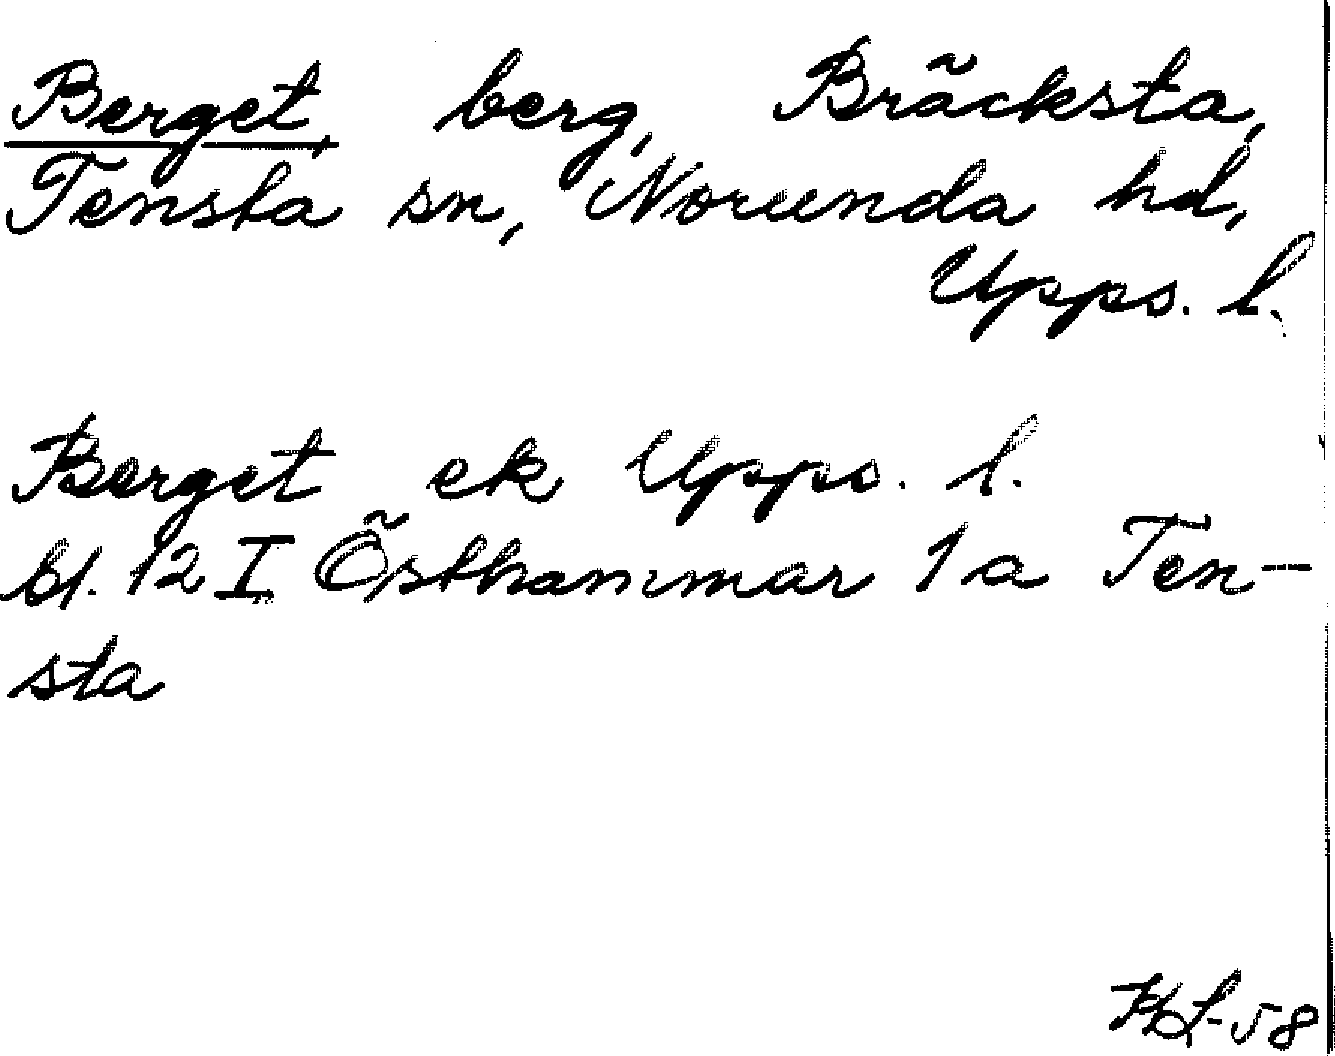 Berget, berg, Bräcksta,
Tensta sn, Norunda hd,
Upps. l.
Berget ek Upps. l.
bl. 12 I Östhammar 1a Ten-
sta
HL-58